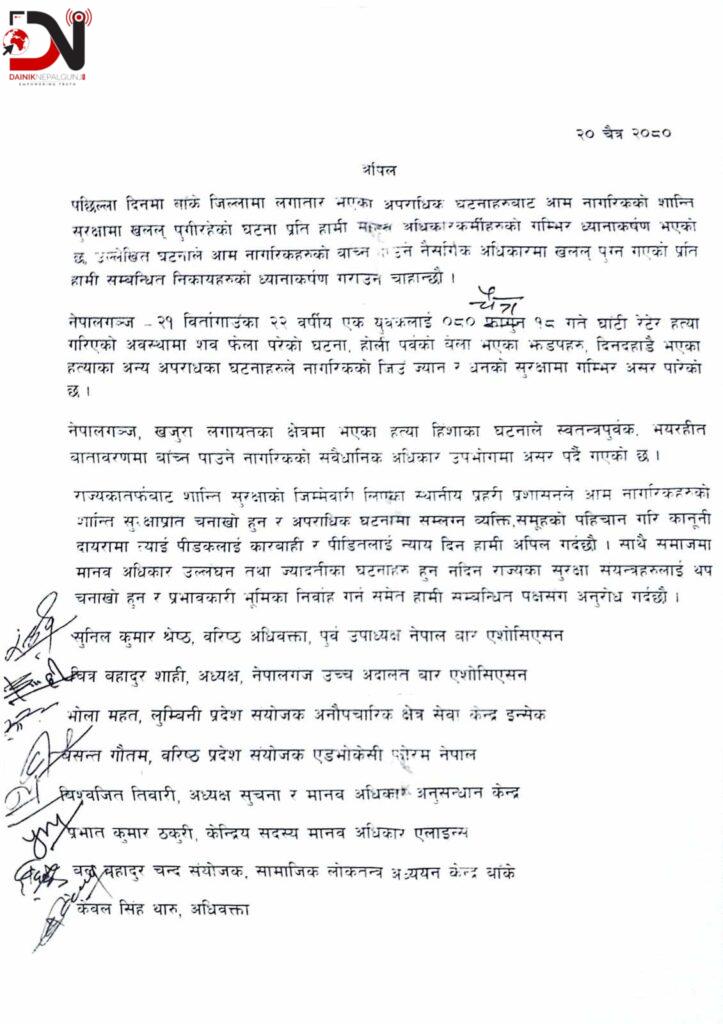 DN
DAINIKNEPALGUNJ
EMPOWERING TRUTH
२० चैत्र २०८०
अपिल
पछिल्ला दिनमा बाँके जिल्लामा लगातार भएका अपराधिक घटनाहरुबाट आम नागरिकको शान्ति
सुरक्षामा खलल् पुगीरहेको घटना प्रति हामी मानव अधिकारकर्मीहरुको गम्भिर ध्यानाकर्षण भएको
छ, उल्लेखित घटनाले आम नागरिकहरुको बाच्न पाउने नैसर्गिक अधिकारमा खलल् पुग्न गएको प्रति
हामी सम्बन्धित निकायहरुको ध्यानाकर्षण गराउन चाहान्छौ ।
चैत्र
नेपालगञ्ज - २१ वितांगाउंका २२ वर्षीय एक युवकलाई ०८० फागुन १८ गते घाटी रेटेर हत्या
गरिएको अवस्थामा शव फेला परेको घटना, होली पर्वको बेला भएका झडपहरु, दिनदहाडै भएका
हत्याका अन्य अपराधका घटनाहरुले नागरिकको जिउ ज्यान र धनको सुरक्षामा गम्भिर असर पारेको
छ ।
नेपालगञ्ज, खजुरा लगायतका क्षेत्रमा भएका हत्या हिंशाका घटनाले स्वतन्त्रपुर्वक, भयरहीत
बातावरणमा बाँच्न पाउने नागरिकको सवैधानिक अधिकार उपभोगमा असर पर्दै गएको छ ।
राज्यकातर्फबाट शान्ति सुरक्षाको जिम्मेवारी लिएका स्थानीय प्रहरी प्रशासनले आम नागरिकहरुको
शान्ति सुरक्षाप्रति चनाखो हुन र अपराधिक घटनामा सम्लग्न व्यक्ति,समूहको पहिचान गरि कानूनी
दायरामा ल्याई पीडकलाई कारबाही र पीडितलाई न्याय दिन हामी अपिल गर्दछौ । साथै समाजमा
मानव अधिकार उल्लघन तथा ज्यादतीका घटनाहरु हुन नदिन राज्यका सुरक्षा सयन्त्रहरुलाई थप
चनाखो हुन र प्रभावकारी भूमिका निर्वाह गर्न समेत हामी सम्बन्धित पक्षसग अनुरोध गर्दछौ ।
सुनिल कुमार श्रेष्ठ, वरिष्ठ अधिवक्ता, पुर्व उपाध्यक्ष नेपाल बार एशोसिएसन
चित्र बहादुर शाही, अध्यक्ष, नेपालगज उच्च अदालत बार एशोसिएसन
भोला महत, लुम्बिनी प्रदेश सयोजक अनौपचारिक क्षेत्र सेवा केन्द्र इन्सेक
बसन्त गौतम, वरिष्ठ प्रदेश सयोजक एडभोकेसी फोरम नेपाल
विश्वजित तिवारी, अध्यक्ष सुचना र मानव अधिकार अनुसन्धान केन्द्र
प्रभात कुमार ठकुरी, केन्द्रिय सदस्य मानव अधिकार एलाइन्स
बहादुर चन्द संयोजक, सामाजिक लोकतन्त्र अध्ययन केन्द्र बाँके
केवल सिंह थारु, अधिवक्ता